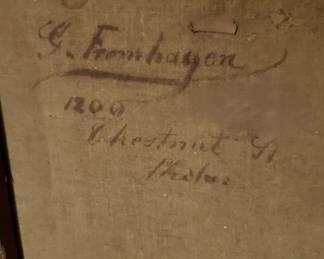 G. Fromhagen
1200
Chestnut St
Phila: